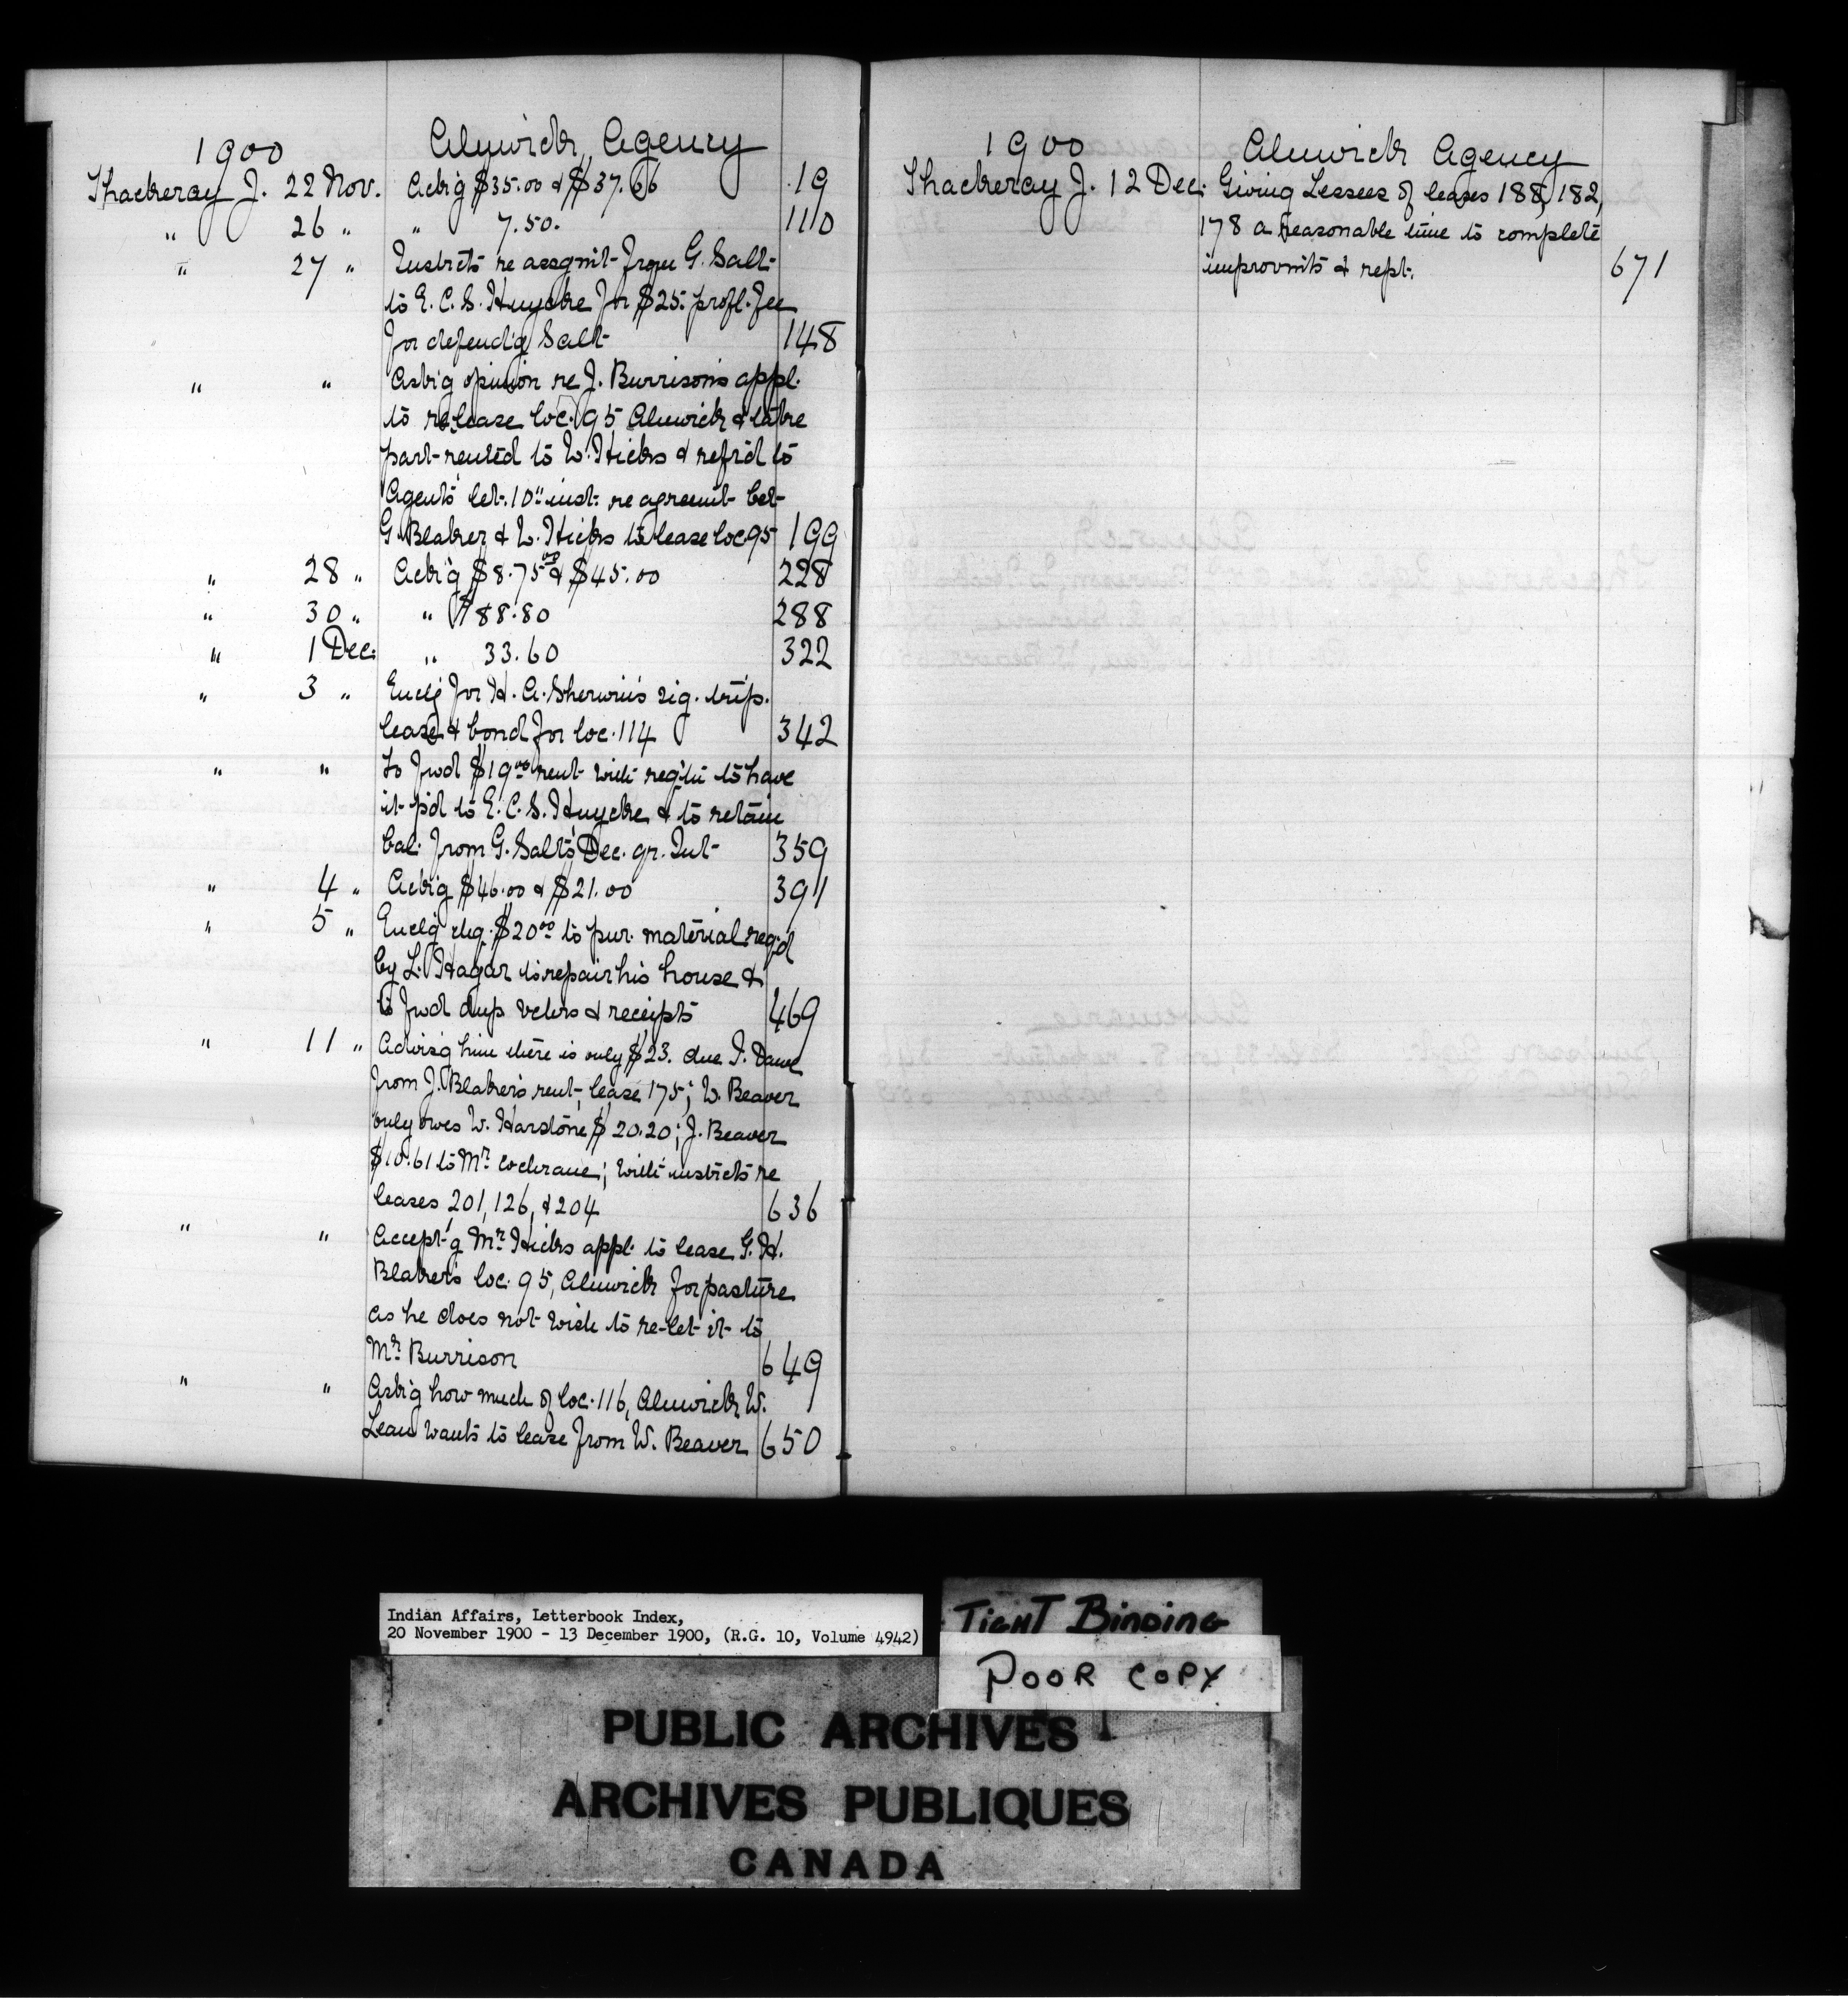 1900 Alnwick Agency
Thackeray J. 22 Nov. Ackg $35.00 & $37.66 19
" 26 " " 7.50. 110
" 27 " Instrcts re assgmt from G. Salt
to E. C. S. Huycke for $25. profl. fee
for defend'g Salt 148
" " Askg opinion re J. Burrison's appl.
to release loc. 95 Alnwick & take
part rented to W. Hicks & refrd to
Agents' let. 10" inst. re agreemt bet
G. Blaker & W. Hicks to lease loc 95 199
" 28 " Ackg $8.75 & $45.00 228
" 30 " " $88.80 288
" 1 Dec. " 33.60 322
" 3 " Enclg for H. A. Sherwin's sig. trip.
lease & bond for loc. 114 342
" " To fwd $19.00 rent with to have
it p'd to E. C. S. Huycke & to retain
bal. from G. Salt's Dec. qr. Int 359
" 4 " Ackg $46.00 & $21.00 391
" 5 " Enclg chq. $20.00 to pur. material reqd
by L. Hagar to repair his house &
to fwd dup vchrs & receipts 469
" 11 " Advisg him there is only $23. due
from J. Blaker's rent, lease 175; W. Beaver
only owes W. Harstone $20.20; J. Beaver
$10.61 to Mr. Cochrane; with instrcts re
leases 201, 126, & 204 636
" " Accept'g Mr. Hicks appl. to lease G. H.
Blaker's loc. 95, Alnwick for pasture
as he does not wish to re-let it to
Mr. Burrison 649
" " Askg how much of loc. 116, Alnwick W.
Lean wants to lease from W. Beaver 650
1900 Alnwick Agency
Thackeray J. 12 Dec. Giving Lessees of leases 188, 182,
178 a reasonable time to complete
improvmts & rept. 671
Indian Affairs, Letterbook Index,
20 November 1900 - 13 December 1900, (R.G. 10, Volume 4942)
TIGHT BINDING
POOR COPY
PUBLIC ARCHIVES
ARCHIVES PUBLIQUES
CANADA